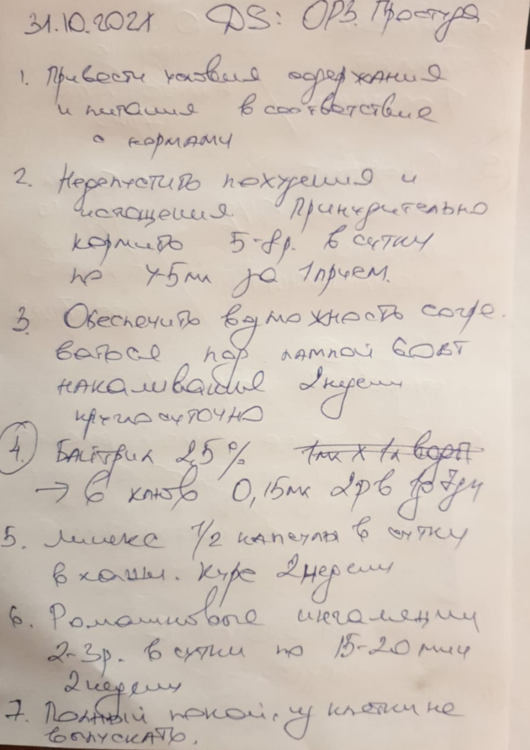 31.10.2021 DS: ОРЗ. Простуда
1. Привести условия содержания
и питания в соответствие
с нормами
2. Недопустить похудения и
истощения Принудительно
кормить 5-8р. в сутки
по 4-5мл за 1 прием.
3. Обеспечить возможность согре
ваться под лампой 60Вт
накаливания 2 недели
круглосуточно
4. Байтрил 2,5% 1мл х 1л воды
→ в клюв 0,15мл 2р в д 7дн
5. Линекс 1/2 капсулы в сутки
в каши. Курс 2 недели
6. Ромашковые ингаляции
2-3р. в сутки по 15-20 мин
2 недели
7. Полный покой, из клетки не
выпускать.